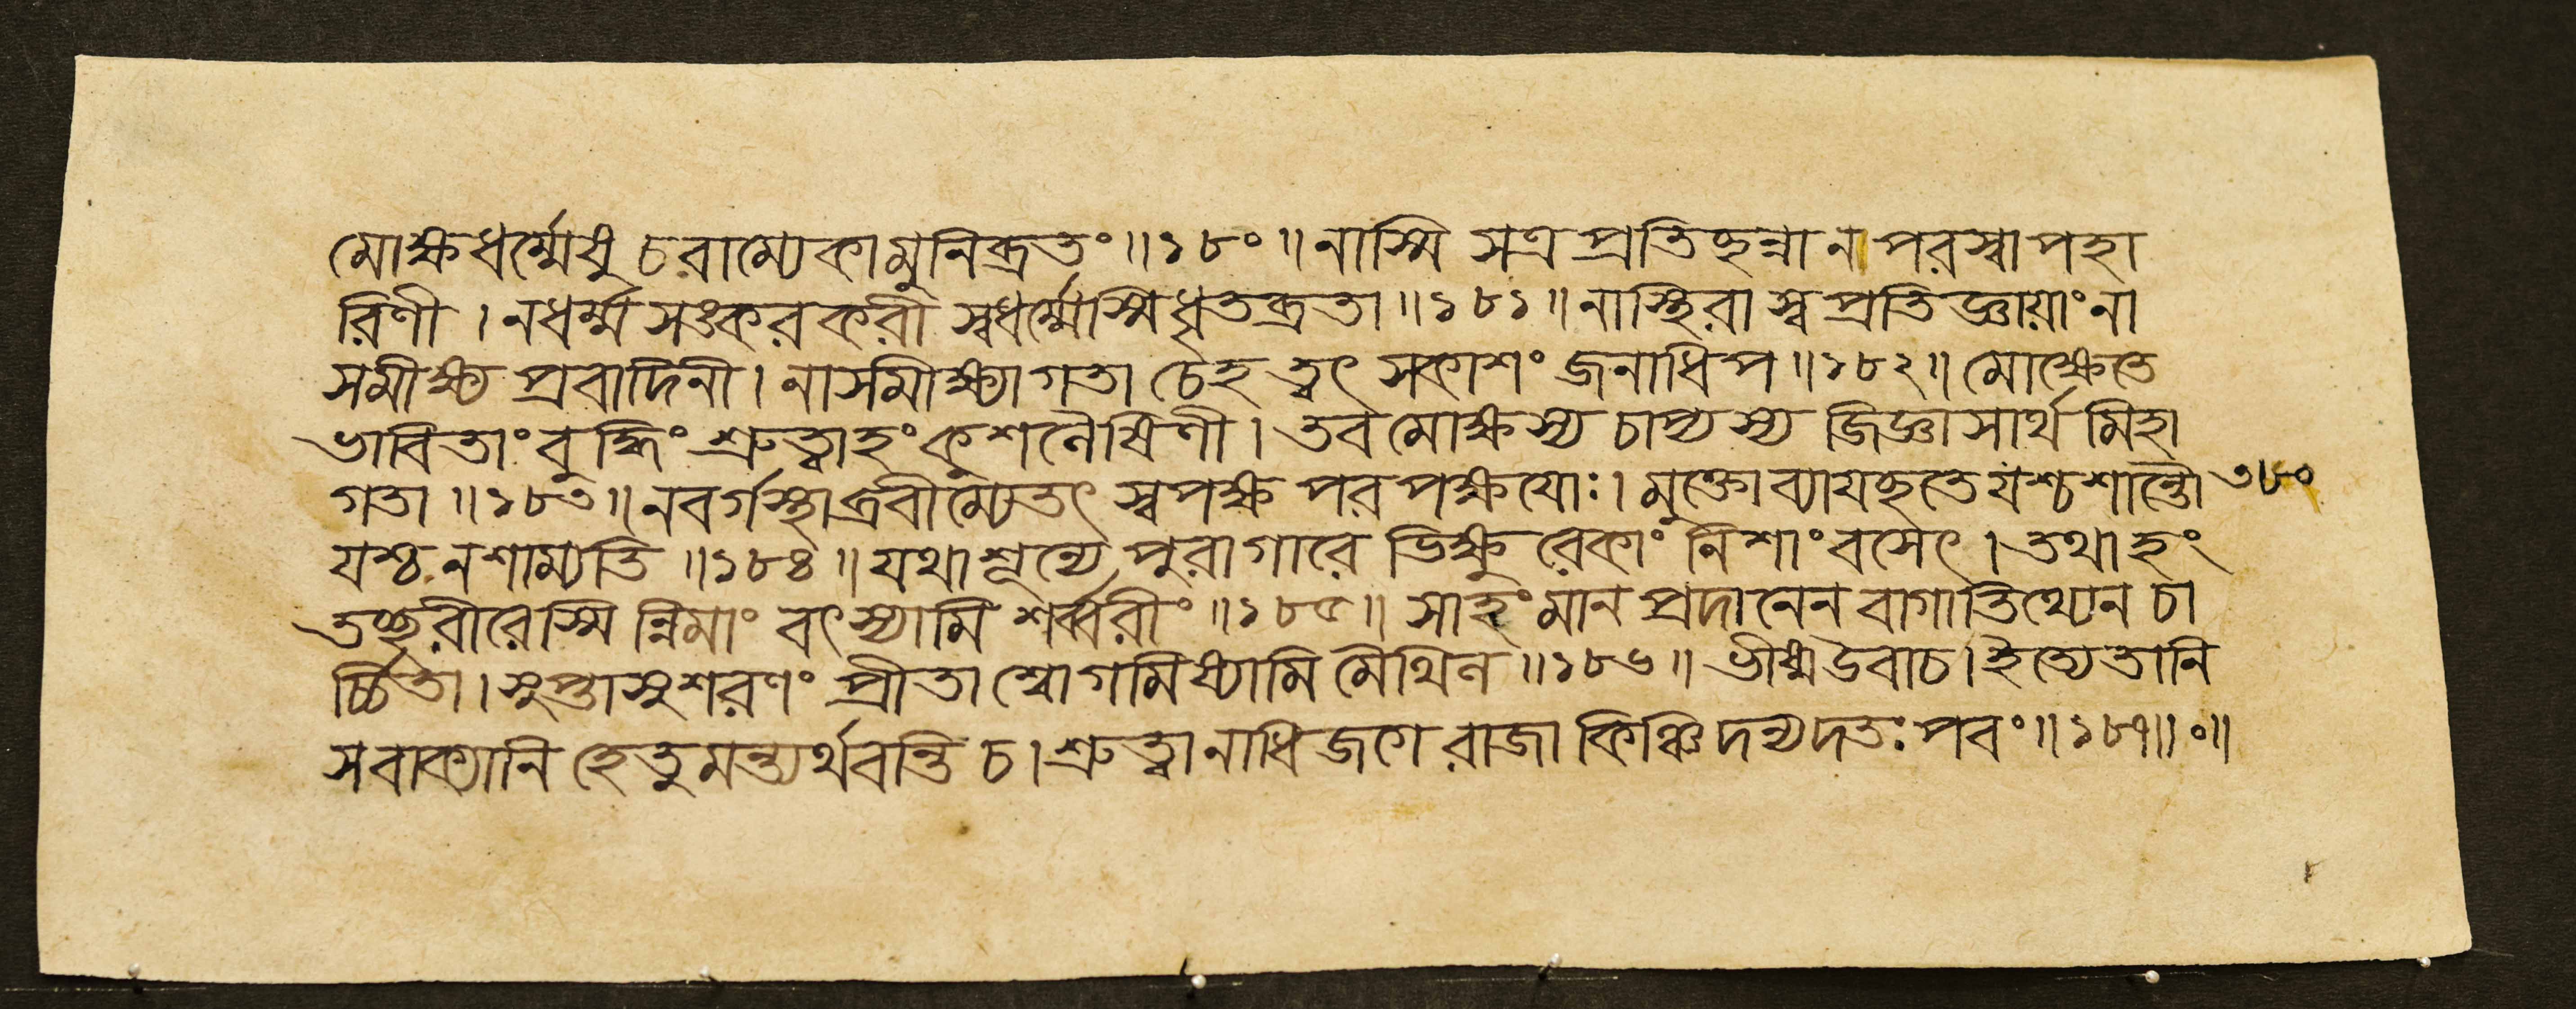 মোক্ষধর্ম্মেষু চরাম্যেকামুনিব্রতং॥১৮০॥নাস্মি সত্রপ্রতিচ্ছন্না ন পরস্বাপহা
রিণী।নধর্ম্মসঙ্করকরী স্বধর্ম্মেস্মিধৃতব্রতা॥১৮১॥নাস্থিরা স্বপ্রতিজ্ঞায়াং না
সমীক্ষ্য প্রবাদিনী।নাসমীক্ষ্যাগতা চেহ ত্বৎ সকাশং জনাধিপ॥১৮২॥মোক্ষেতে
ভাবিতাং বুদ্ধিং শ্রুত্বাহং কুশলৈষিণী।তব মোক্ষস্য চাপ্যস্য জিজ্ঞাসার্থমিহা
গতা॥১৮৩॥নবর্গস্থাব্রবীম্যেতৎ স্বপক্ষ পরপক্ষয়োঃ।মুক্তোব্যায়চ্ছতে যশ্চশান্তৌ ৩৮০
যশ্চ নশাম্যতি॥১৮৪॥যথাশূন্যে পুরাগারে ভিক্ষুরেকাং নিশাং বসেৎ।তথাহং
ত্বচ্ছরীরেস্মিন্নিমাং বৎস্যামি শর্ব্বরীং॥১৮৫॥সাহং মানপ্রদানেন বাগাতিথ্যেন চা
র্চ্চিতা।সুপ্তাসুশরণং প্রীতা শ্বোগমিষ্যামি মৈথিল॥১৮৬॥ভীষ্মউবাচ।ইত্যেতানি
সবাক্যানি হেতুমন্ত্যর্থবন্তি চ।শ্রুত্বানাধিজগে রাজা কিঞ্চিদন্যদতঃপরং॥১৮৭॥০॥